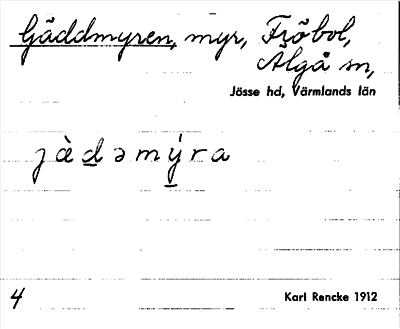 Gäddmyren, myr, Fröbol,
Älgå sn,
Jösse hd, Värmlands län
jàd̲əmý̲ra
4
Karl Rencke 1912